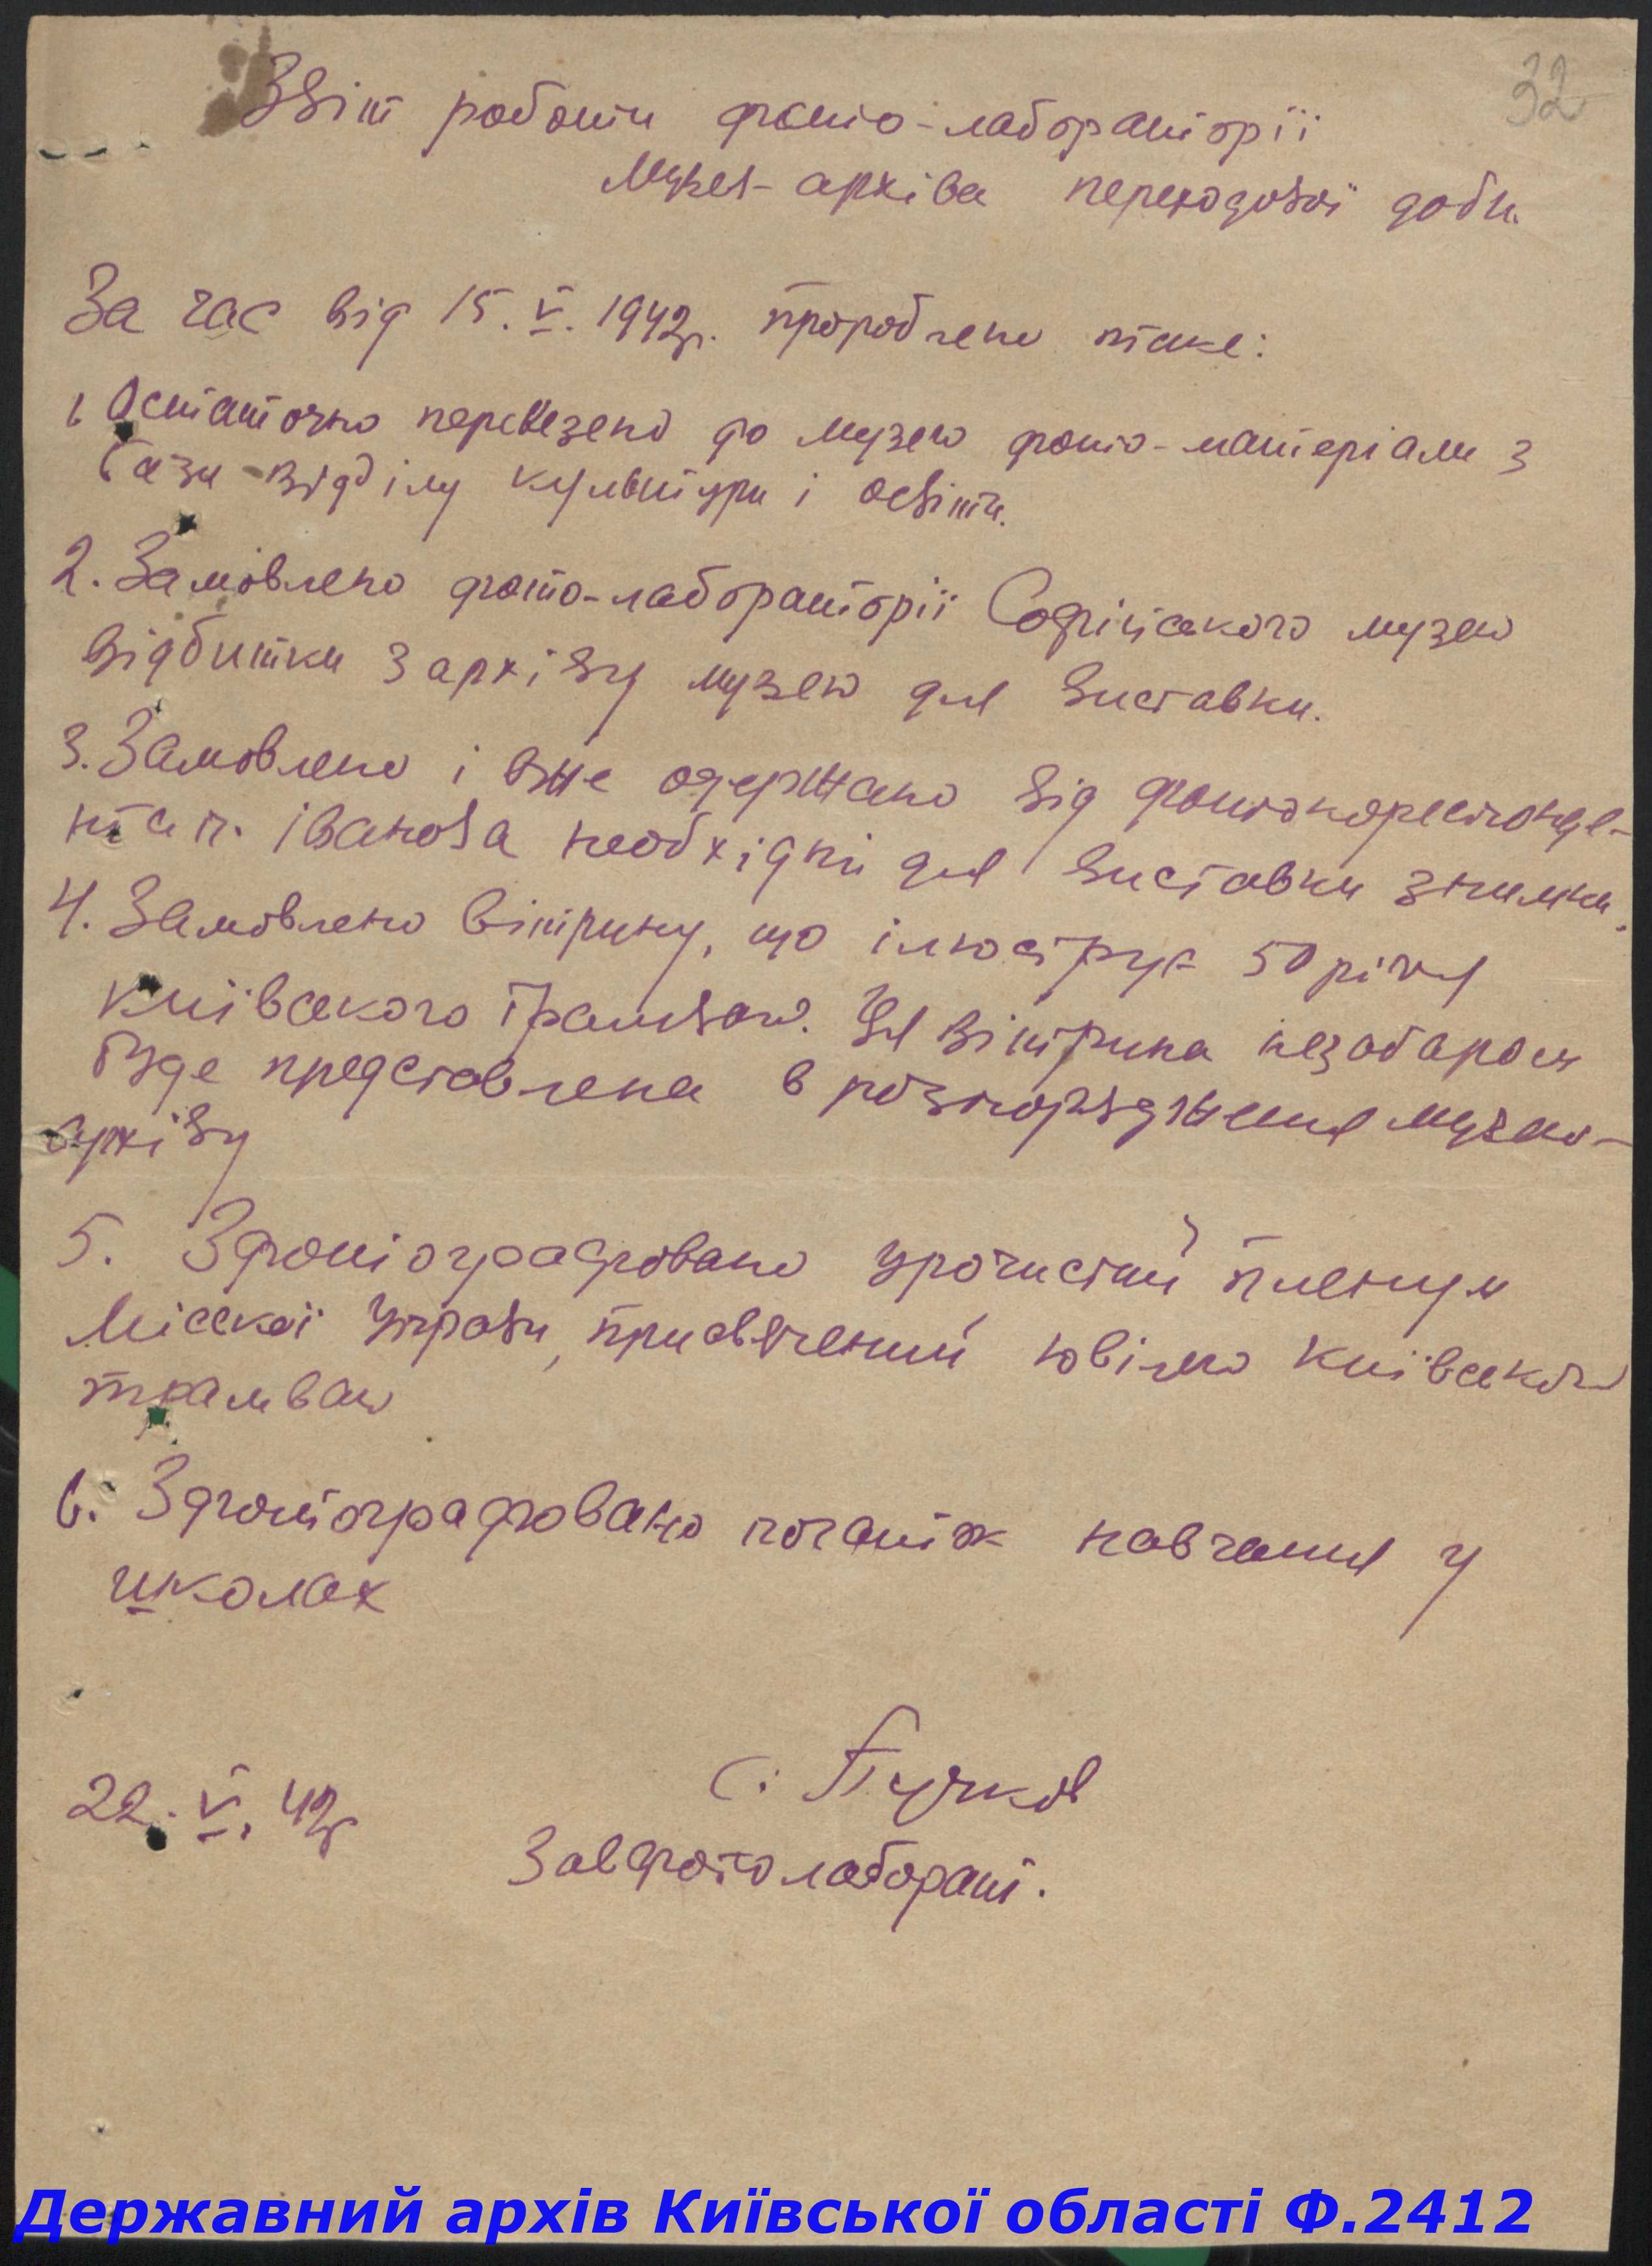 32
Звіт роботи фото-лабораторії
Музея-архіва переходової доби
За час від 15.V.1942р. пророблено таке:
1 Остаточно перевезено до музею фото-матеріали з
бази відділу культури і освіти.
2. Замовлено фото-лабораторії Софійського музею
відбитки з архіву музею для виставки.
3. Замовлено і вже одержано від фотокореспонде-
нта п. Іванова необхідні для виставки знимки.
4. Замовлено вітрину, що ілюструє 50 річчя
київського трамваю. Ця вітрина незабаром
буде представлена в розпорядження музею-
архіву
5. Зфотографовано урочистий пленум
Міської Управи, присвячений ювілею київського
трамваю
6. Зфотографовано початок навчання у
школах
22.V.42р
С. Пучков
Завфотолаборат.
Державний архів Київської області Ф.2412